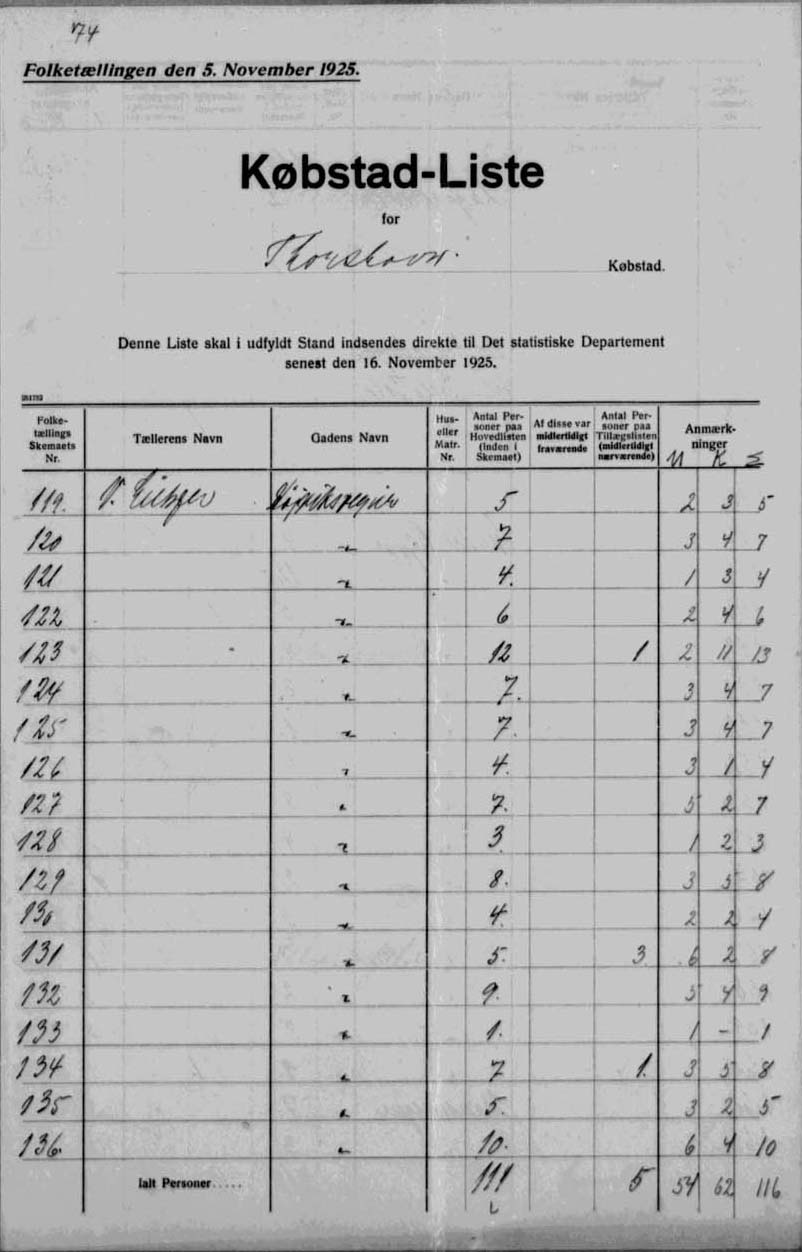 74
Folketællingen den 5. November 1925.
Købstad-Liste
for
Thorshavn. Købstad.
Denne Liste skal i udfyldt Stand indsendes direkte til Det statistiske Departement
senest den 16. November 1925.
Folketællings Skemaets Nr. Tællerens Navn Gadens Navn Hus- eller Matr. Nr. Antal Personer paa Hovedlisten (inden i Skemaet) Af disse var midlertidigt fraværende Antal Personer paa Tillægslisten (midlertidigt nærværende) Anmærkninger
M K S
119. V. 5 2 3 5
120 -"- 7 3 4 7
121 -"- 4. 1 3 4
122 -"- 6 2 4 6
123 -"- 12 1 2 11 13
124 " 7. 3 4 7
125 -"- 7. 3 4 7
126 " 4. 3 1 4
127 " 7. 5 2 7
128 " 3 1 2 3
129 " 8. 3 5 8
130 " 4. 2 2 4
131 " 5. 3 6 2 8
132 " 9. 5 4 9
133 " 1. 1 - 1
134 " 7 1. 3 5 8
135 " 5. 3 2 5
136. " 10. 6 4 10
Ialt Personer ..... 111 5 54 62 116
L